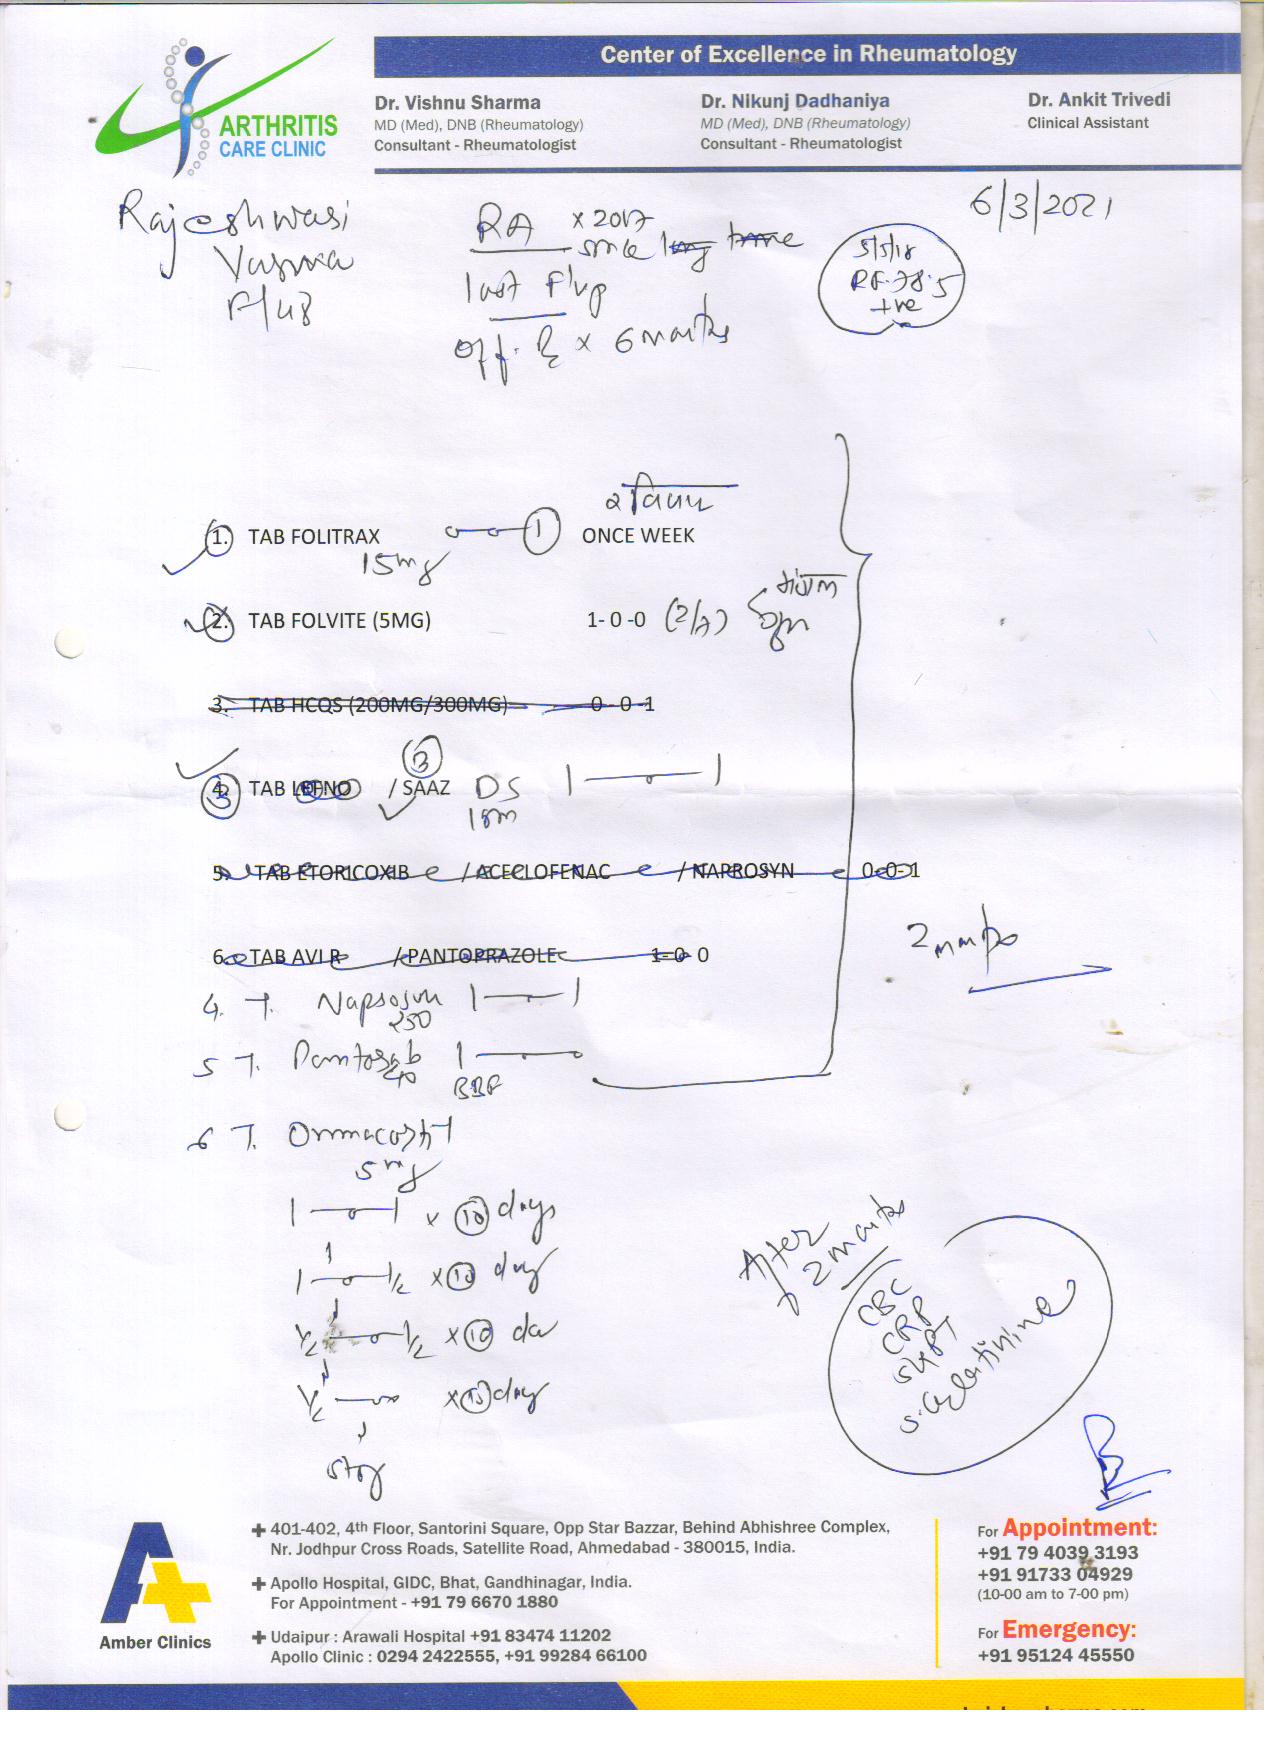 Center of Excellence in Rheumatology
ARTHRITIS
CARE CLINIC
Dr. Vishnu Sharma
MD (Med), DNB (Rheumatology)
Consultant - Rheumatologist
Dr. Nikunj Dadhaniya
MD (Med), DNB (Rheumatology)
Consultant - Rheumatologist
Dr. Ankit Trivedi
Clinical Assistant
6/3/2021
Rajeshwari
Varma
F/48
RA x 2017
since long time
last F/up
off. Rx x 6 months
5/5/18
RF-78.5
+ve
1. TAB FOLITRAX 0-0-1 ONCE WEEK
15mg
2. TAB FOLVITE (5MG) 1-0-0 (2/7)
3. TAB HCQS (200MG/300MG) 0-0-1
3
4. TAB LEFNO / SAAZ DS 1-0-1
5. TAB ETORICOXIB / ACECLOFENAC / NAPROSYN 0-0-1
6. TAB AVI R / PANTOPRAZOLE 1-0-0
2 months
4. T. Naprosyn 1-0-1
250
5 T. Pantosab 1-0-0
40 BBF
6 T. Omnacortil
5mg
1-0-1 x 10 days
1-0-1/2 x 10 day
1/2-0-1/2 x 10 da
1/2-0-0 x 10 day
stop
After
2 months
CBC
CRP
SGPT
S. Creatinine
Amber Clinics
401-402, 4th Floor, Santorini Square, Opp Star Bazzar, Behind Abhishree Complex,
Nr. Jodhpur Cross Roads, Satellite Road, Ahmedabad - 380015, India.
Apollo Hospital, GIDC, Bhat, Gandhinagar, India.
For Appointment - +91 79 6670 1880
Udaipur : Arawali Hospital +91 83474 11202
Apollo Clinic : 0294 2422555, +91 99284 66100
For Appointment:
+91 79 4039 3193
+91 91733 04929
(10-00 am to 7-00 pm)
For Emergency:
+91 95124 45550